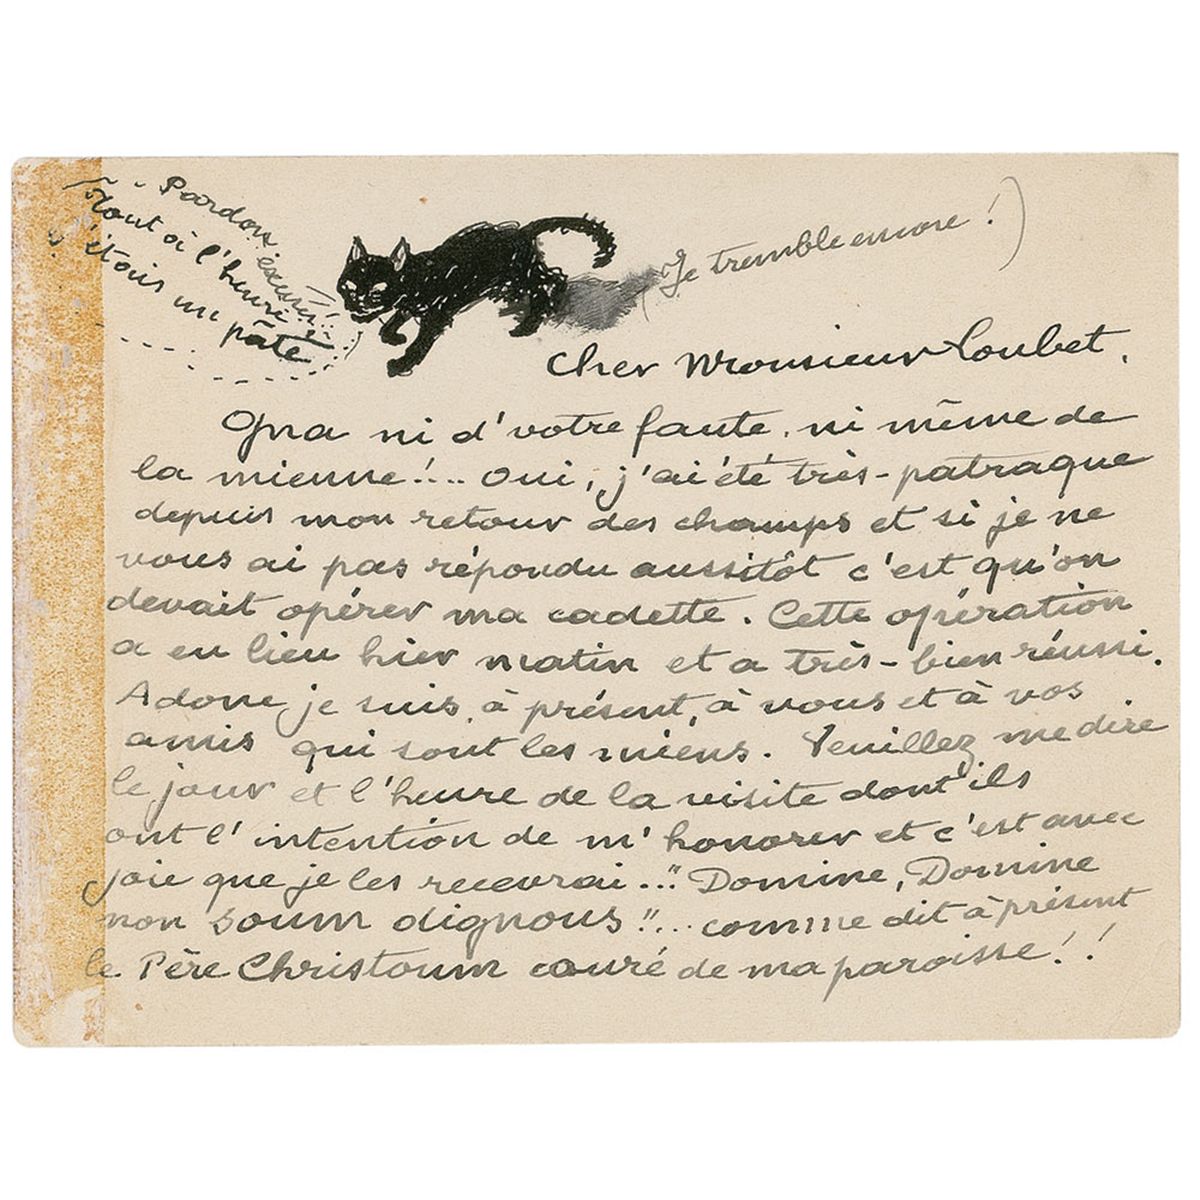 Pardon
excusez !..
Tout à l'heure
j'étais un
pâté
(Je tremble encore !)
Cher Monsieur Loubet,
Gna ni d'votre faute, ni même de
la mienne !... Oui, j'ai été très-patraque
depuis mon retour des champs et si je ne
vous ai pas répondu aussitôt c'est qu'on
devait opérer ma cadette. Cette opération
a eu lieu hier matin et a très-bien réussi.
Adonc, je suis, à présent, à vous et à vos
amis qui sont les miens. Veuillez me dire
le jour et l'heure de la visite dont ils
ont l'intention de m'honorer et c'est avec
joie que je les recevrai..." Domine, Domine
non soum dignous "... comme dit à présent
le Père Christoum couré de ma paroisse ! !